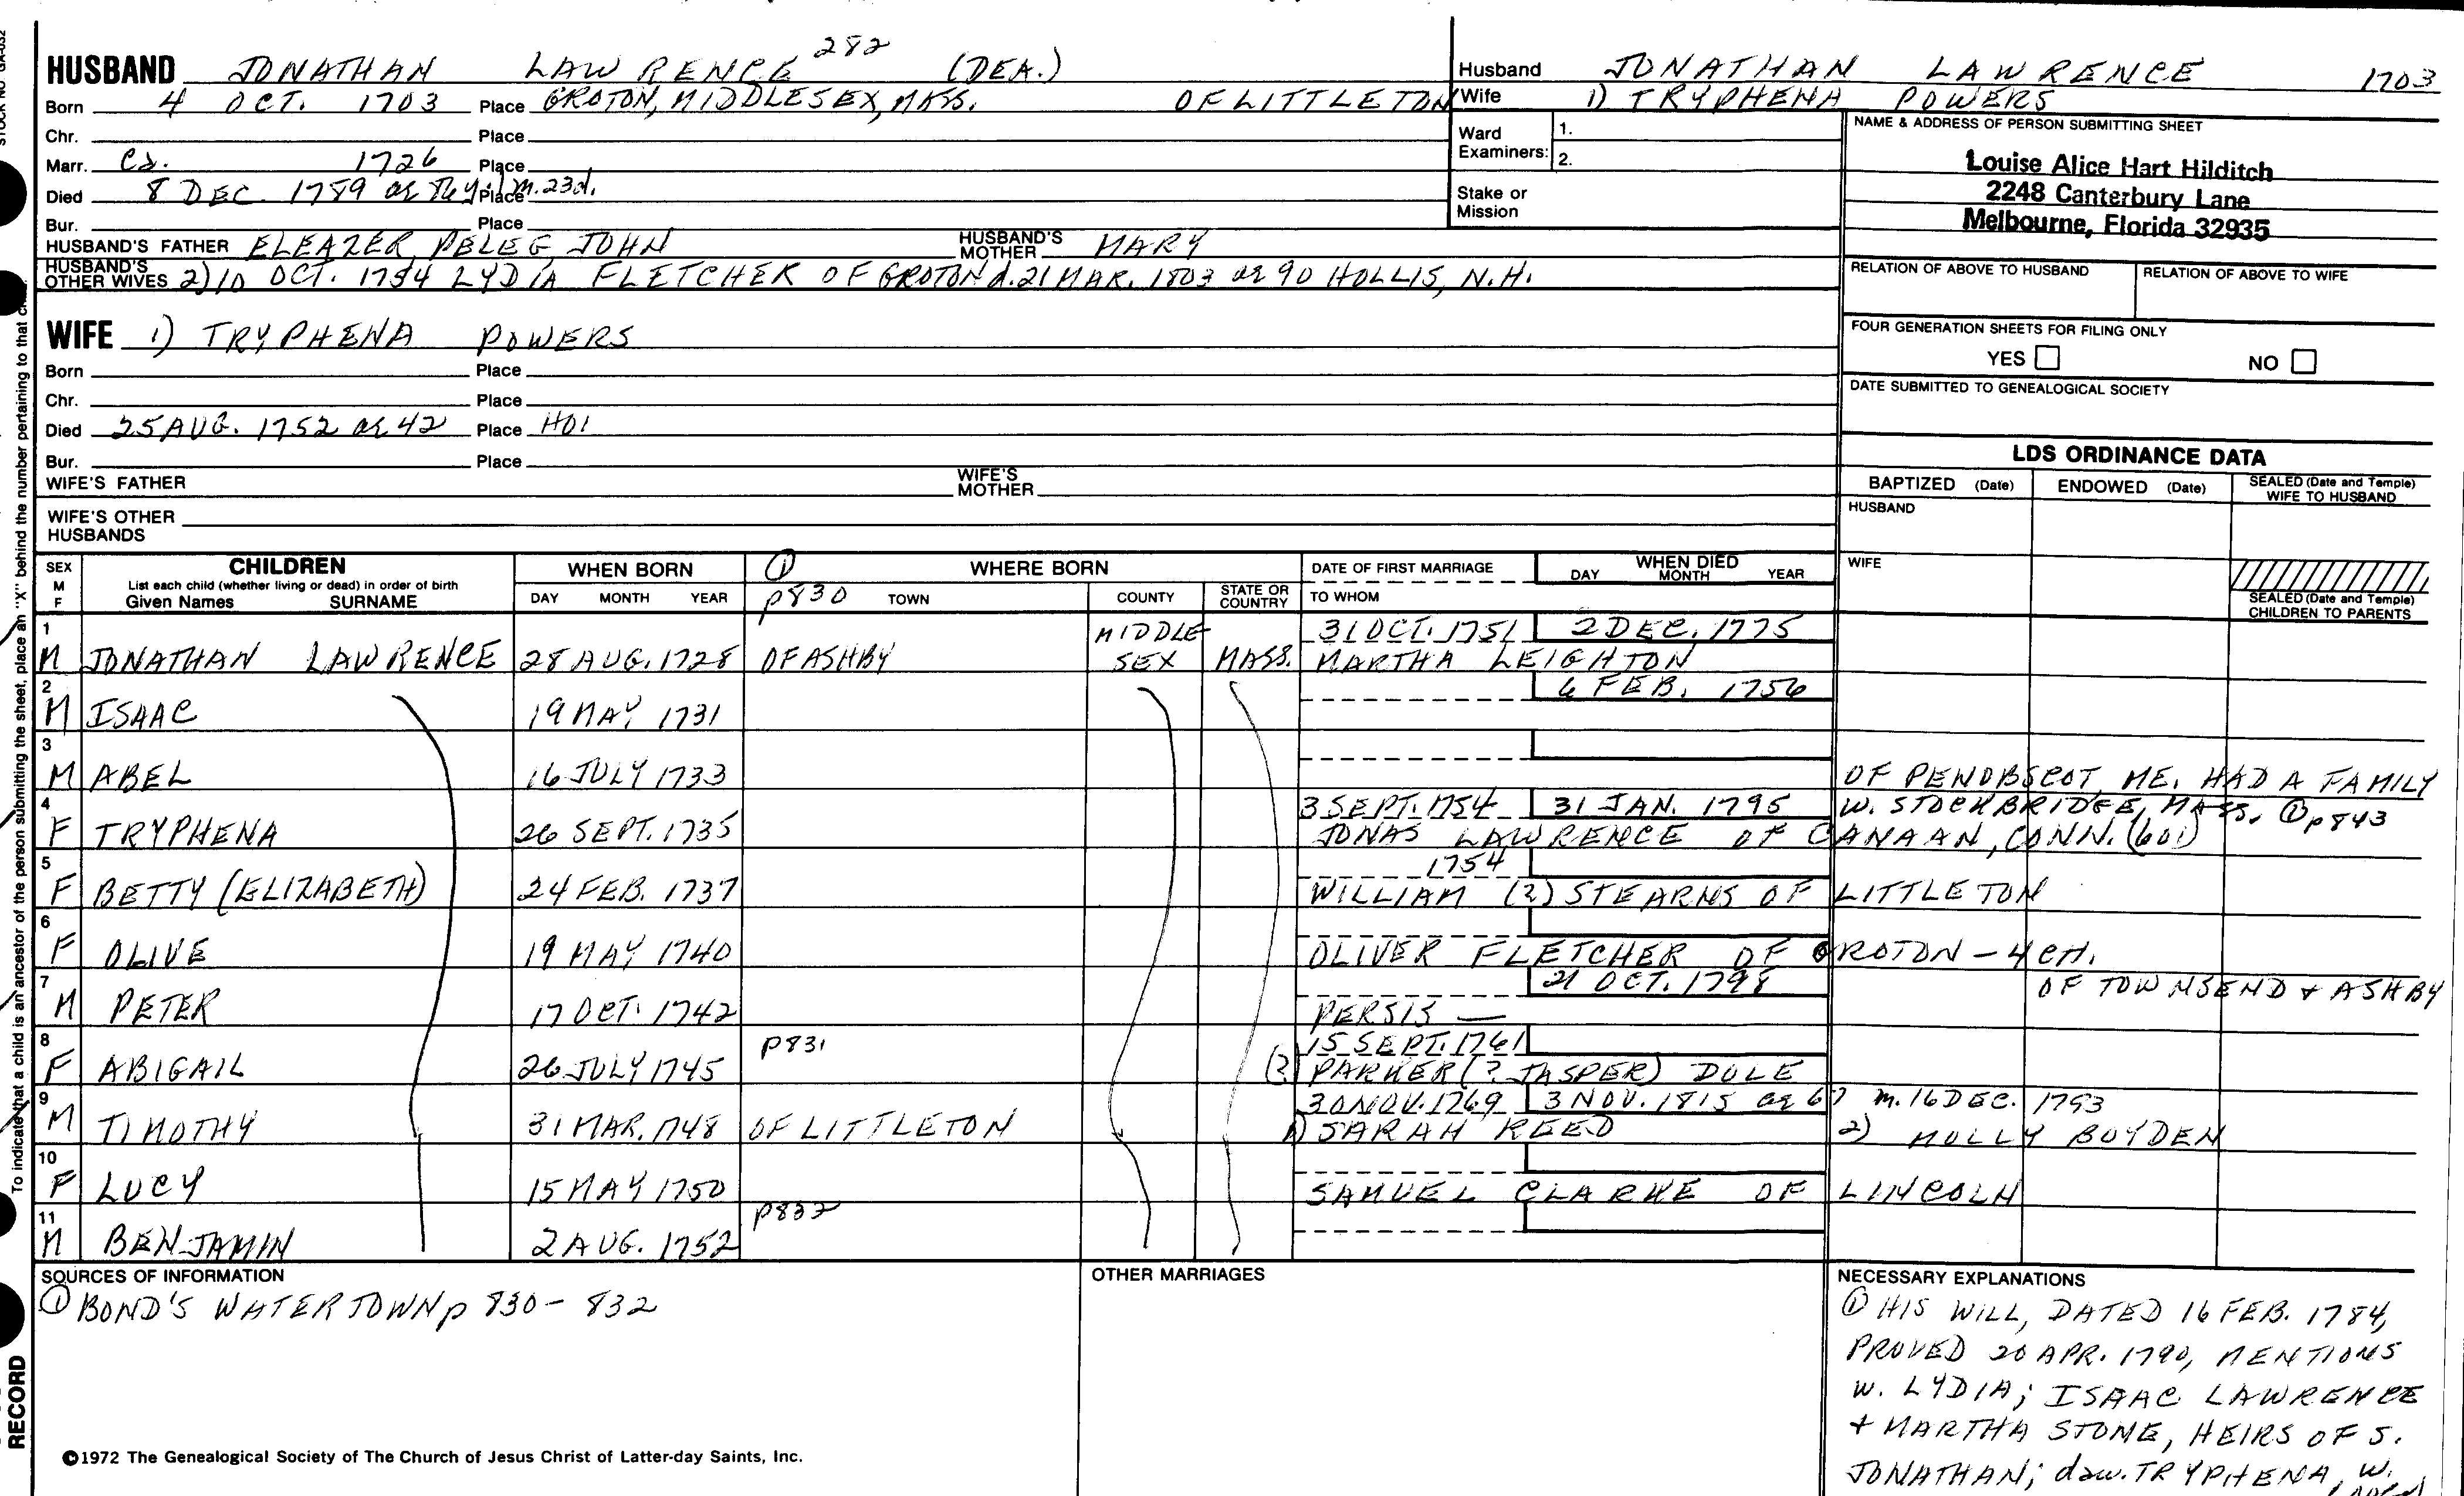 STOCK NO GA-032
HUSBAND JONATHAN LAWRENCE 282 (DEA.)
Born 4 OCT. 1703 Place GROTON, MIDDLESEX, MASS. OF LITTLETON
Chr. Place
Marr. Ca. 1726 Place
Died 8 DEC. 1789 ae 86y. m. 23d. Place
Bur. Place
HUSBAND'S FATHER ELEAZER, PELEG, JOHN HUSBAND'S MOTHER MARY
HUSBAND'S OTHER WIVES 2) 10 OCT. 1754 LYDIA FLETCHER OF GROTON d. 21 MAR. 1803 ae 90 HOLLIS, N.H.
WIFE 1) TRYPHENA POWERS
Born Place
Chr. Place
Died 25 AUG. 1752 ae 42 Place
Bur. Place
WIFE'S FATHER WIFE'S MOTHER
WIFE'S OTHER HUSBANDS
Husband JONATHAN LAWRENCE 1703
Wife 1) TRYPHENA POWERS
Ward Examiners: 1.
2.
Stake or Mission
NAME & ADDRESS OF PERSON SUBMITTING SHEET
Louise Alice Hart Hilditch
2248 Canterbury Lane
Melbourne, Florida 32935
RELATION OF ABOVE TO HUSBAND RELATION OF ABOVE TO WIFE
FOUR GENERATION SHEETS FOR FILING ONLY
YES NO
DATE SUBMITTED TO GENEALOGICAL SOCIETY
LDS ORDINANCE DATA
BAPTIZED (Date) ENDOWED (Date) SEALED (Date and Temple) WIFE TO HUSBAND
HUSBAND
WIFE
SEALED (Date and Temple) CHILDREN TO PARENTS
SEX M F
CHILDREN
List each child (whether living or dead) in order of birth
Given Names SURNAME
WHEN BORN
DAY MONTH YEAR
① p830
WHERE BORN
TOWN COUNTY STATE OR COUNTRY
DATE OF FIRST MARRIAGE
TO WHOM
WHEN DIED
DAY MONTH YEAR
1 31 OCT. 1751 2 DEC. 1775
M JONATHAN LAWRENCE 28 AUG. 1728 OF ASHBY MIDDLESEX MASS. MARTHA LEIGHTON
2 6 FEB. 1756
M ISAAC 19 MAY 1731
3
M ABEL 16 JULY 1733 OF PENOBSCOT, ME. HAD A FAMILY
4 3 SEPT. 1754 31 JAN. 1795 W. STOCKBRIDGE, MASS. ① p843
F TRYPHENA 26 SEPT. 1735 JONAS LAWRENCE OF CANAAN, CONN. (601)
5 1754
F BETTY (ELIZABETH) 24 FEB. 1737 WILLIAM (?) STEARNS OF LITTLETON
6
F OLIVE 19 MAY 1740 OLIVER FLETCHER OF GROTON – 4 CH.
7 21 OCT. 1798 OF TOWNSEND + ASHBY
M PETER 17 OCT. 1742 PERSIS —
8 p831 15 SEPT. 1761
F ABIGAIL 26 JULY 1745 (?) PARKER (? JASPER) DOLE
9 30 NOV. 1769 3 NOV. 1815 ae 67 m. 16 DEC. 1793
M TIMOTHY 31 MAR. 1748 OF LITTLETON 1) SARAH REED 2) MOLLY BOYDEN
10
F LUCY 15 MAY 1750 SAMUEL CLARKE OF LINCOLN
11 p832
M BENJAMIN 2 AUG. 1752
SOURCES OF INFORMATION
① BOND'S WATERTOWN p 830 – 832
OTHER MARRIAGES
NECESSARY EXPLANATIONS
① HIS WILL, DATED 16 FEB. 1784,
PROVED 20 APR. 1790, MENTIONS
W. LYDIA; ISAAC LAWRENCE
+ MARTHA STONE, HEIRS OF S.
JONATHAN; dau. TRYPHENA, W.
©1972 The Genealogical Society of The Church of Jesus Christ of Latter-day Saints, Inc.
To indicate that a child is an ancestor of the person submitting the sheet, place an "X" behind the number pertaining to that
RECORD